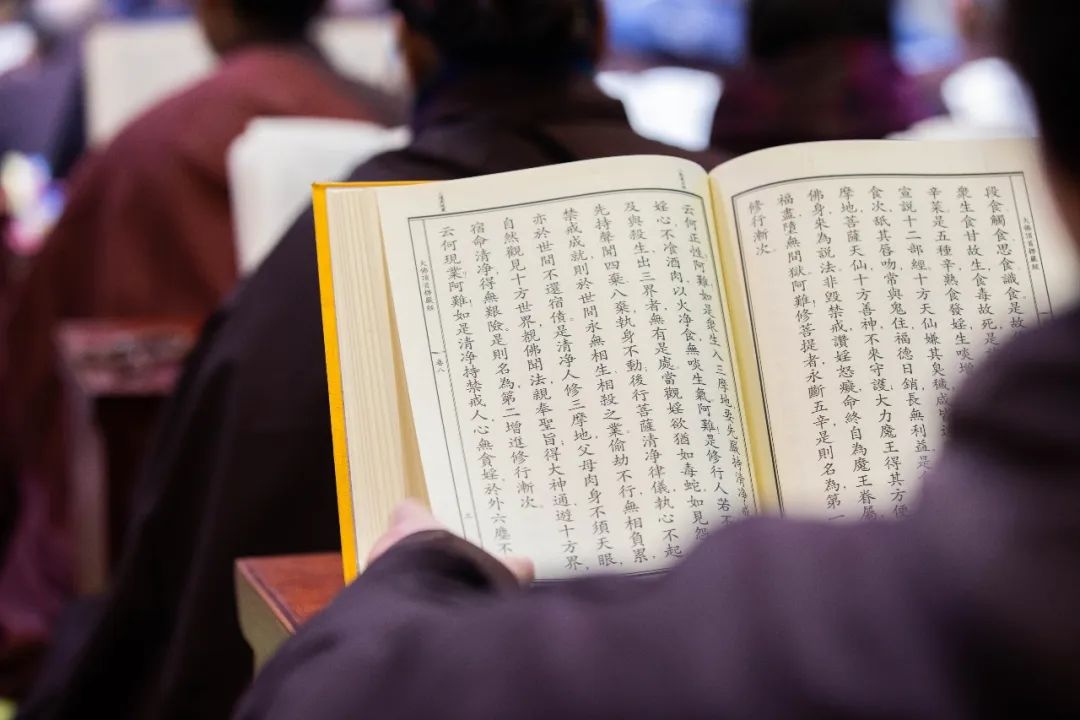 大佛頂首楞嚴經
段食觸食,思食識食,是故
衆生食甘故生,食毒故死,是
辛菜,是五種辛,熟食發婬,生啖增
宣說十二部經,十方天仙嫌其臭穢,咸皆遠
食次,舐其唇吻,常與鬼住,福德日銷,長無利益,是
摩地,菩薩天仙,十方善神,不來守護,大力魔王得其方便
佛身,來為說法,非毀禁戒,讚婬怒癡,命終自為魔王眷屬
福盡,墮無間獄,阿難,修菩提者永斷五辛,是則名為第一
修行漸次。
云何正性,阿難,如是衆生入三摩地,要先嚴持清淨
婬心,不飡酒肉,以火淨食,無啖生氣,阿難,是修行人,若不
及與殺生,出三界者,無有是處,當觀婬欲猶如毒蛇,如見怨
先持聲聞四棄八棄,執身不動,後行菩薩清淨律儀,執心不起
禁戒成就,則於世間永無相生相殺之業,偷劫不行,無相負累,
亦於世間不還宿債,是清淨人修三摩地,父母肉身不須天眼,
自然觀見十方世界,覩佛聞法,親奉聖旨,得大神通,遊十方界,
宿命清淨,得無艱險。是則名為第二增進修行漸次。
云何現業,阿難,如是清淨持禁戒人,心無貪婬,於外六塵不
大佛頂首楞嚴經
卷八
三